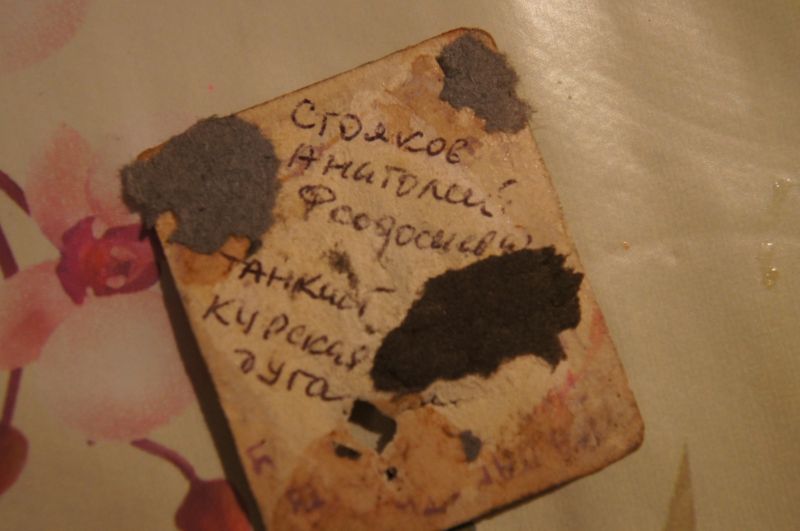 Стояков
Анатолий
Феодосиевич
танкист
Курская
дуга